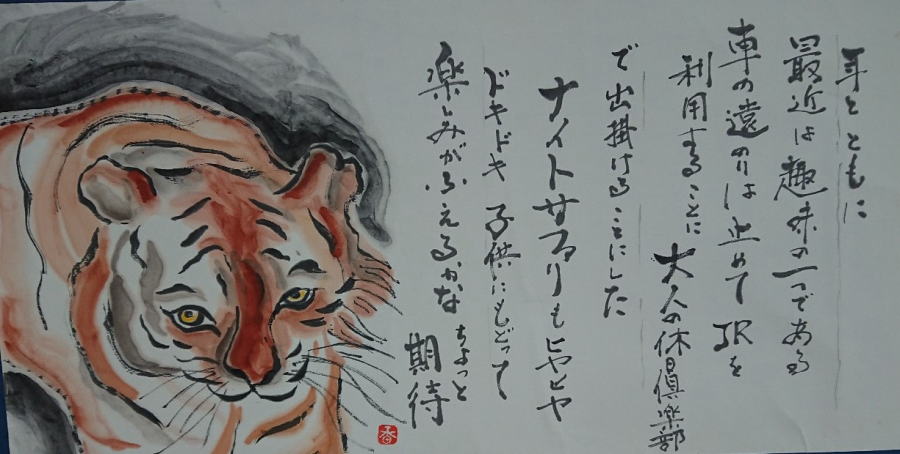 年とともに
最近は趣味の一つである
車の遠のりは止めてJRを
利用することに
大人の休日倶楽部
で出掛けることにした
ナイトサファリもヒヤヒヤ
ドキドキ子供にもどって
楽しみがふえるかな
ちょっと
期待
香